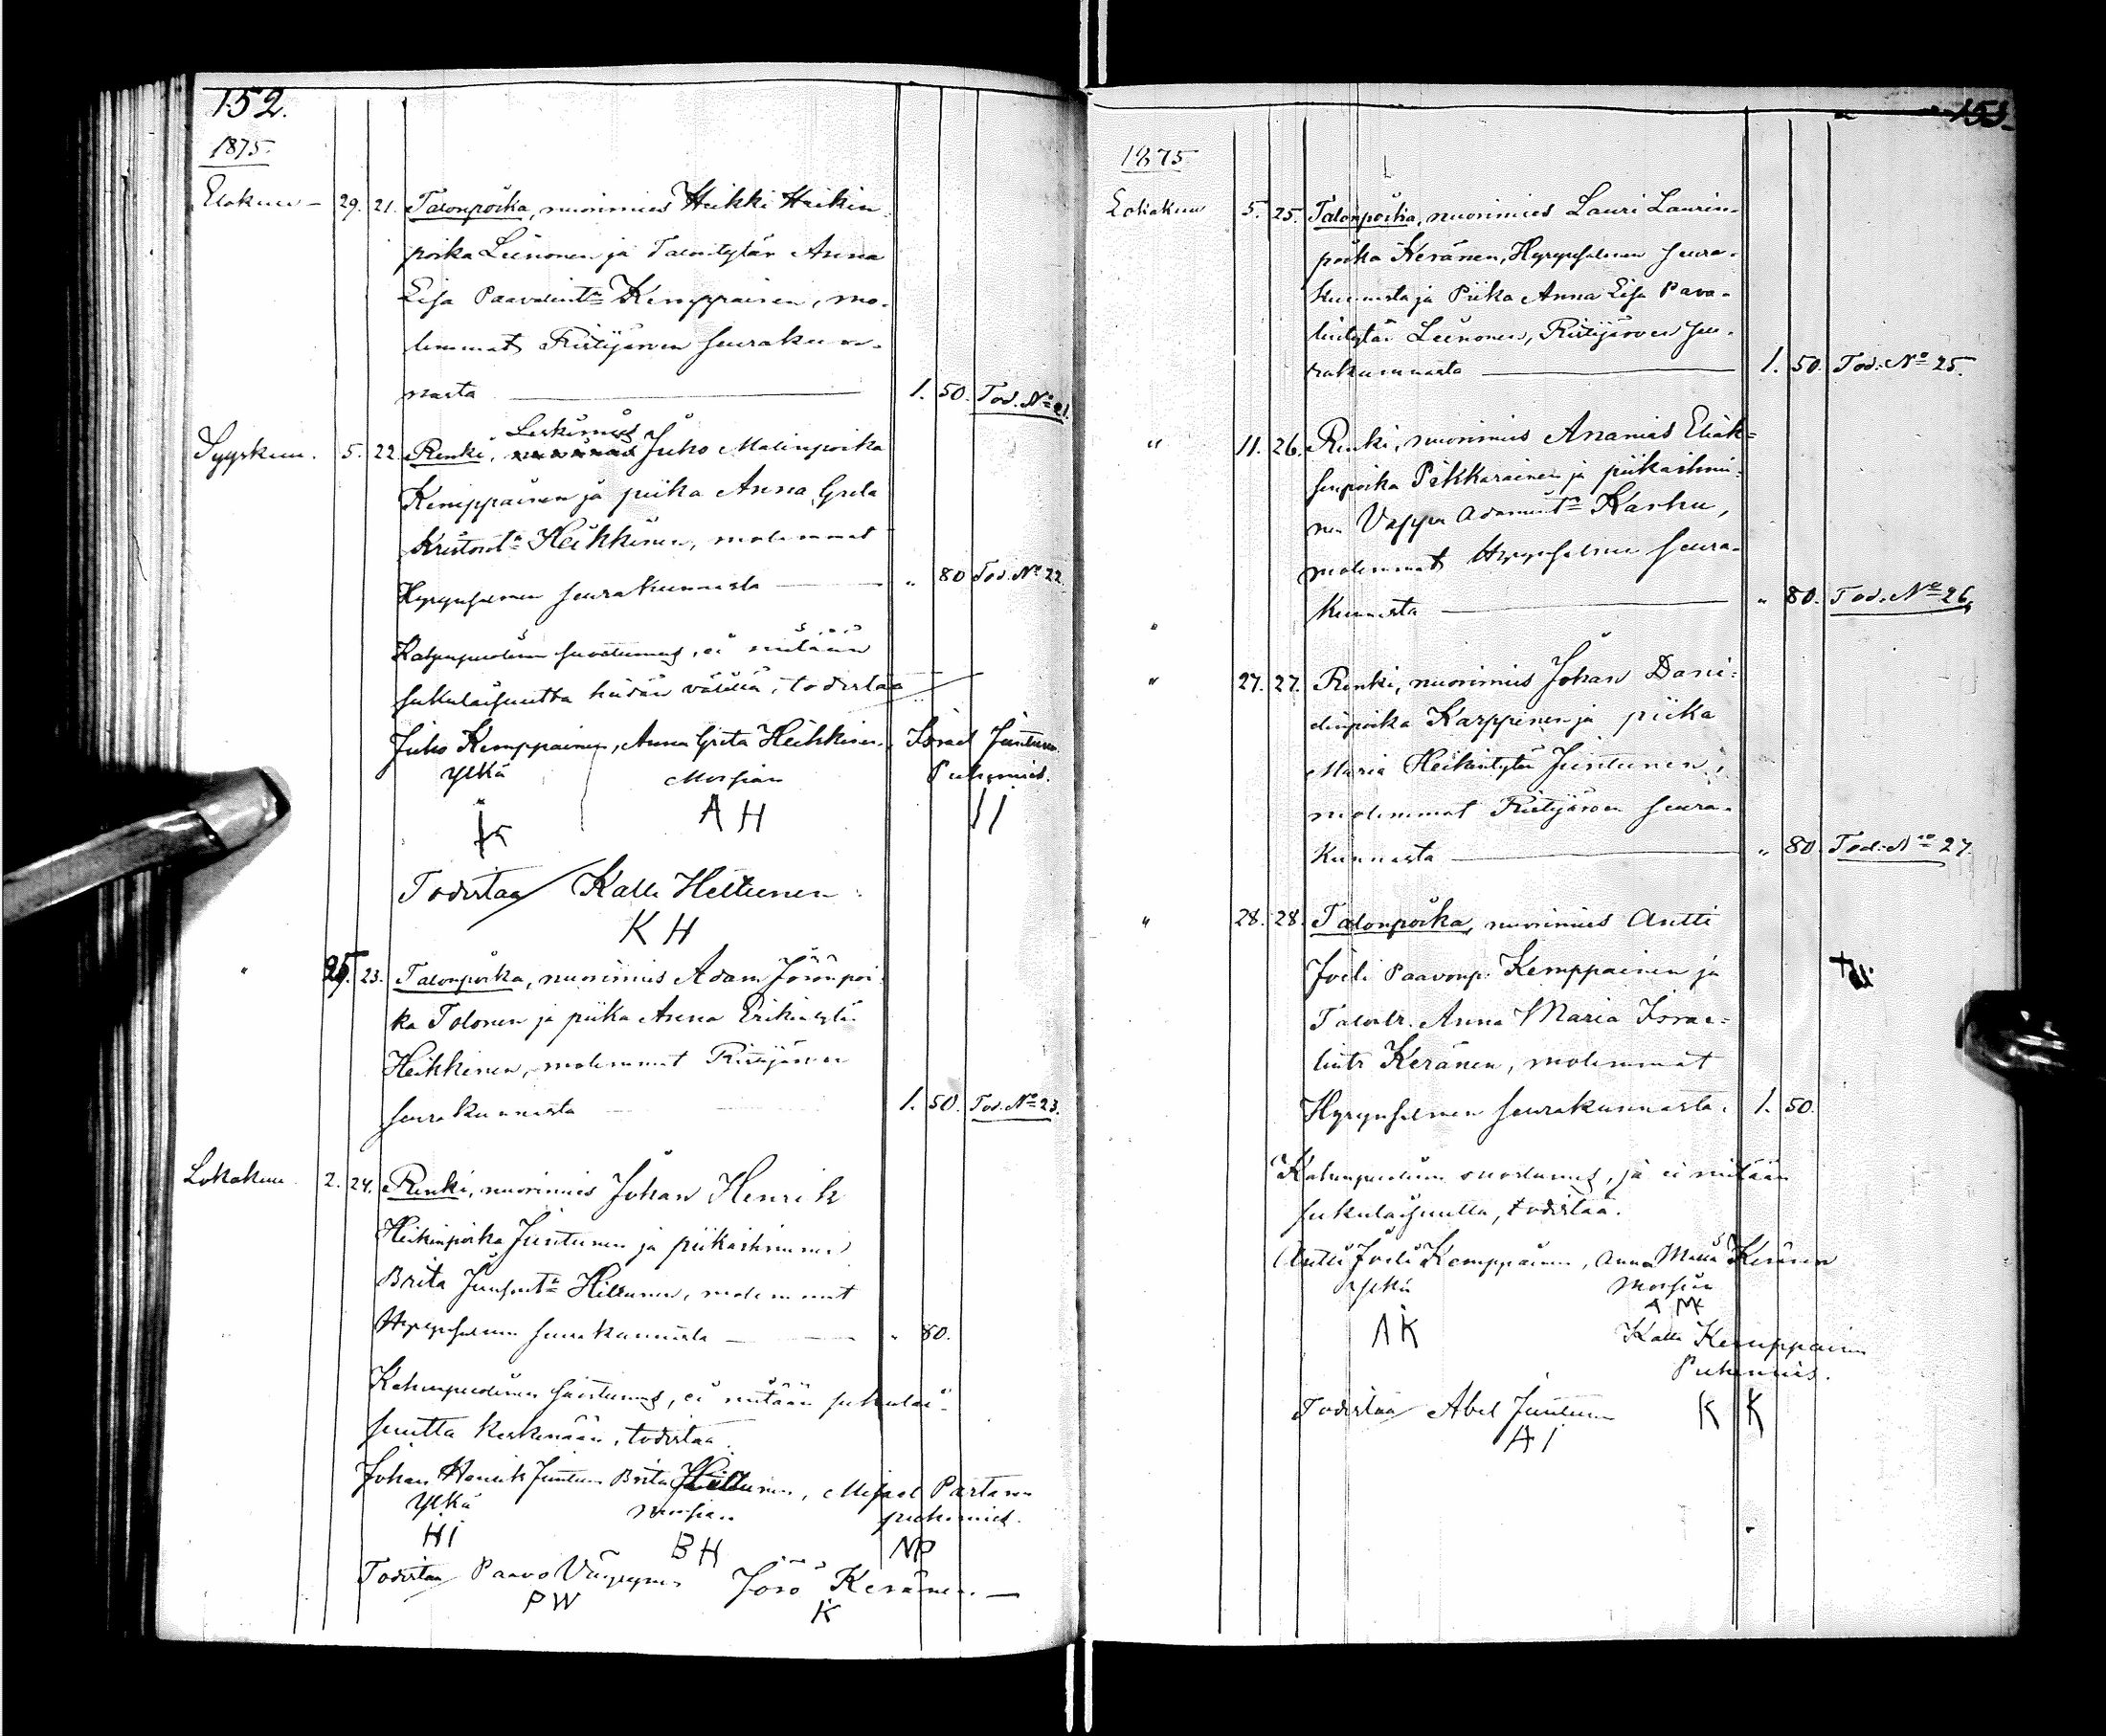 152.
1875.
Elokuu – 29. 21. Talonpoika, nuorimies Heikki Heikin-
poika Leinonen ja Talontytär Anna
Lisa Paavalint:r Kemppainen, mo-
lemmat Ristijärven seurakun-
nasta 1. 50. Tod. No 21.
Leskimies
Syyskuu. 5. 22. Renki, Juho Matinpoika
Kemppainen ja piika Anna Greta
Heikkinen, molemmat
Hyrynsalmen seurakunnasta " 80 Tod. No 22.
Kahenpuolinen suostumus, ei mitään
sukulaisuutta heidän välillä, todistaa
Juho Kemppainen, Anna Greta Heikkinen, Israel Juntunen
Ylkä Morsian Puhemies.
A H I I
Todistaa Kalle Heltunen
K H
" 25. 23. Talonpoika, nuorimies Adam Jösönpoi-
ka Tolonen ja piika Anna Erikintytär
Heikkinen, molemmat Ristijärven
seurakunnasta 1. 50. Tod. No 23.
Lokakuu. 2. 24. Renki, nuorimies Johan Henrik
Heikinpoika Juntunen ja piikaihminen
Brita Hiltunen, molemmat
Hyrynsalmen seurakunnasta – " 80.
Kahenpuolinen suostumus, ei mitään sukulai-
suutta keskenään, todistaa
Johan Henrik Juntunen Brita Hiltunen, Misael Partanen
Ylkä morsian puhemies.
H I B H M P
Todistaa Paavo Väyrynen Jösö Keränen. –
P W K
153.
1875
Lokakuu 5. 25. Talonpoika, nuorimies Lauri Laurin-
poika Keränen, Hyrynsalmen seura-
kunnasta ja Piika Anna Lisa Pava-
lintytär Leinonen, Ristijärven seu-
rakunnasta 1. 50. Tod: No 25.
" 11. 26. Renki, nuorimies Ananias Eliak-
senpoika Pikkarainen ja piikaihmi-
nen Vappu Adamint:r Karhu,
molemmat Hyrynsalmen seura-
kunnasta " 80. Tod. No 26.
"
" 27. 27. Renki, nuorimies Johan Dani-
elinpoika Karppinen ja piika
Maria Heikintytär Juntunen,
molemmat Ristijärven seura-
kunnasta " 80 Tod: No 27.
" 28. 28. Talonpoika, nuorimies Antti
Joeli Paavonp. Kemppainen ja
Talontr. Anna Maria Israe-
lintr Keränen, molemmat
Hyrynsalmen seurakunnasta. 1. 50.
Kahenpuolinen suostumus, ja ei mitään
sukulaisuutta, todistaa.
Antti Joeli Kemppainen, Anna Maria Keränen
Ylkä Morsian
A K A M K
Kalle Kemppainen
Puhemies.
Todistaa Abel Juntunen K K
A I